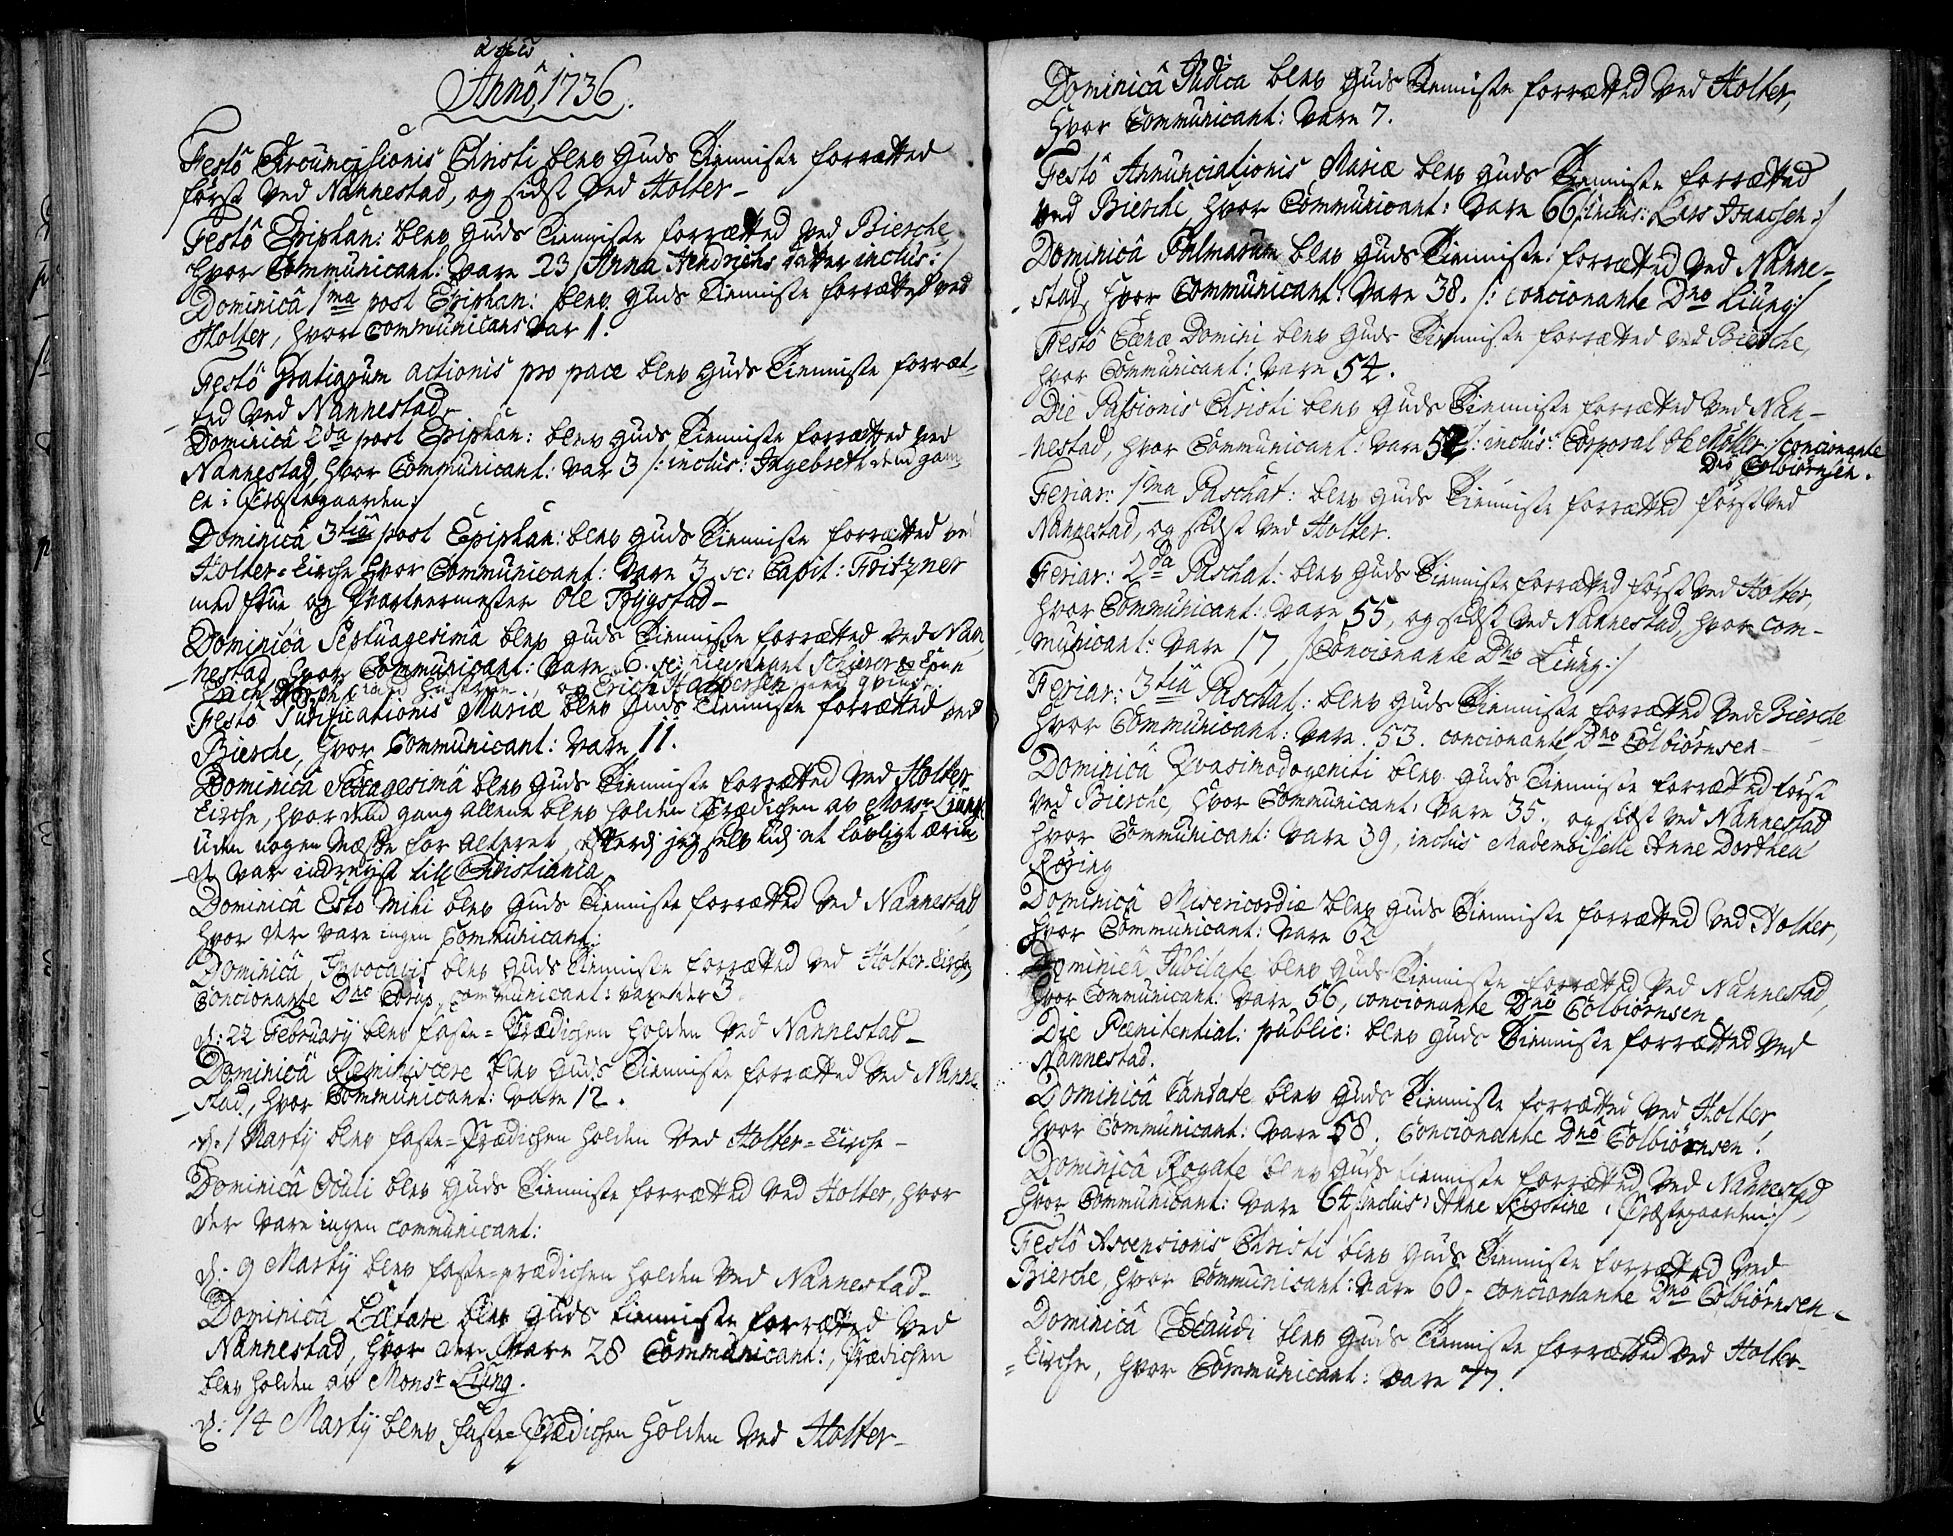 Anno 1736.
Festô Circumcisionis Christi blev Guds Tienniste forrætted
først ved Nannestad, og sidst ved Holter-
Festô Epiphan: blev Guds Tienniste forrætted ved Biersche,
hvor Communicant: vare 23 /: Anna Hendrichs datter inclus:/
Dominicâ 1ma post Epiphan: blev Guds Tienniste forrætted ved
Holter, hvor Communicans var 1.
Festô Gratiarum actionis pro pace blev Guds Tienniste forræt-
-ted ved Nannestad,
Dominicâ 2da post Epiphan: blev Guds Tienniste forrætted ved
Nannestad, hvor Communicant: var 3 /: inclus: Ingebreth dend gam-
le i Præstegaarden:/
Dominicâ 3tia post Epiphan: blev Guds Tienniste forrætted ved
Holter-Kirche hvor Communicant: vare 3 sc: Capit: Fritzner
med frue og Qvarteermester Ole Bygstad-
Dominicâ Septuagesima blev Guds Tienniste forrætted ved Nan-
-nestad, hvor Communicant: vare 6. sc: Lieutnant
og Erich Halvorsen med qvinde.
Festô Purificationis Mariæ blev Guds Tienniste forrætted ved
Biersche, hvor Communicant: vare 11.
Dominicâ Sexagesimâ blev Guds Tienniste forrætted ved Holter
Kirche, hvor dend gang allene blev holden Prædichen av Monsr Liung
uden nogen Mæsse for alteret, efterdj jeg selv udj et lovligt ærin-
-de var indreyst till Christiania.
Dominicâ Esto Mihi blev Guds Tienniste forrætted ved Nannestad
hvor der vare ingen Communicant:
Dominicâ Invocavit blev Guds Tienniste forrætted ved Holter-Kirche,
Concionante Dno Corup, communicant: vare der 3.
d: 22 February blev faste-Prædichen holden ved Nannestad-
Dominicâ Reminiscere blev Guds Tienniste forrætted ved Nanne-
-stad, hvor Communicant: vare 12.
d: 1 Martij blev faste-Prædichen holden ved Holter-Kirche-
Dominicâ Oculi blev Guds Tienniste forrætted ved Holter, hvor
der vare ingen communicant:
d: 9 Martij blev faste-prædichen holden ved Nannestad-
Dominicâ Lætare blev Guds tienniste forrætted ved
Nannestad, hvor der vare 28 Communicant:, Prædichen
blev holden av Monsr Liung.
d: 14 Martij blev faste-Prædichen holden ved Holter-
Dominicâ Judica blev Guds Tienniste forrætted ved Holter,
hvor Communicant: vare 7.
Festô Annunciationis Mariæ blev Guds Tienniste forrætted
ved Biersche, hvor Communicant: vare 66 /: inclus: Lars Isaacsen:/
Dominicâ Palmarum blev Guds Tienniste forrætted ved Nanne-
-stad, hvor Communicant: vare 38. /: concionante Dno Liung:/
Festô Cœnæ Domini blev Guds Tienniste forrætted ved Biersche,
hvor Communicant: vare 54.
Die Passionis Christi blev Guds Tienniste forrætted ved Nan-
-nestad, hvor Communicant: vare 52 /: inclus: Corporal Ole Møller:/ concionante
Dno Colbiørnsen.
Feriar: 1ma Paschat: blev Guds Tienniste forrætted først ved
Nannestad, og sidst ved Holter.
Feriar: 2da Paschat: blev Guds Tienniste forrætted først ved Holter,
hvor Communicant: vare 55, og sidst ved Nannestad, hvor com-
-municant: vare 17, /: Concionante Dno Liung:/
Feriar: 3tia Paschat: blev Guds Tienniste forrætted ved Biersche
hvor Communicant: vare 53. concionante Dno Colbiørnsen-
Dominicâ Qvasimodogeniti blev Guds Tienniste forrætted først
ved Biersche, hvor Communicant: vare 35. og sidst ved Nannestad
hvor Communicant: vare 39, inclus Mademoiselle Anne Dorthea
Røring
Dominicâ Misericordiæ blev Guds Tienniste forrætted ved Holter,
hvor Communicant: vare 62
Dominicâ Jubilate blev Guds Tienniste forrætted ved Nannestad,
hvor Communicant: vare 56, concionante Dnô Colbiørnsen
Die Pœnitential: public: blev Guds Tienniste forrætted ved
Nannestad.
Dominicâ Cantate blev Guds Tienniste forrætted ved Holter
hvor Communicant: vare 58. Concionante Dnô Colbiørnsen.
Dominicâ Rogate blev Guds tienniste forrætted ved Nannestad,
hvor Communicant: vare 64 /: inclus: Anne Kirstine i Præstegaarden:/
Festô Ascensionis Christi blev Guds Tienniste forrætted ved
Biersche, hvor Communicant: vare 60- concionante Dno Colbiørnsen-
Dominicâ Exaudi blev Guds Tienniste forrætted ved Holter-
-Kirche, hvor Communicant: vare 77.